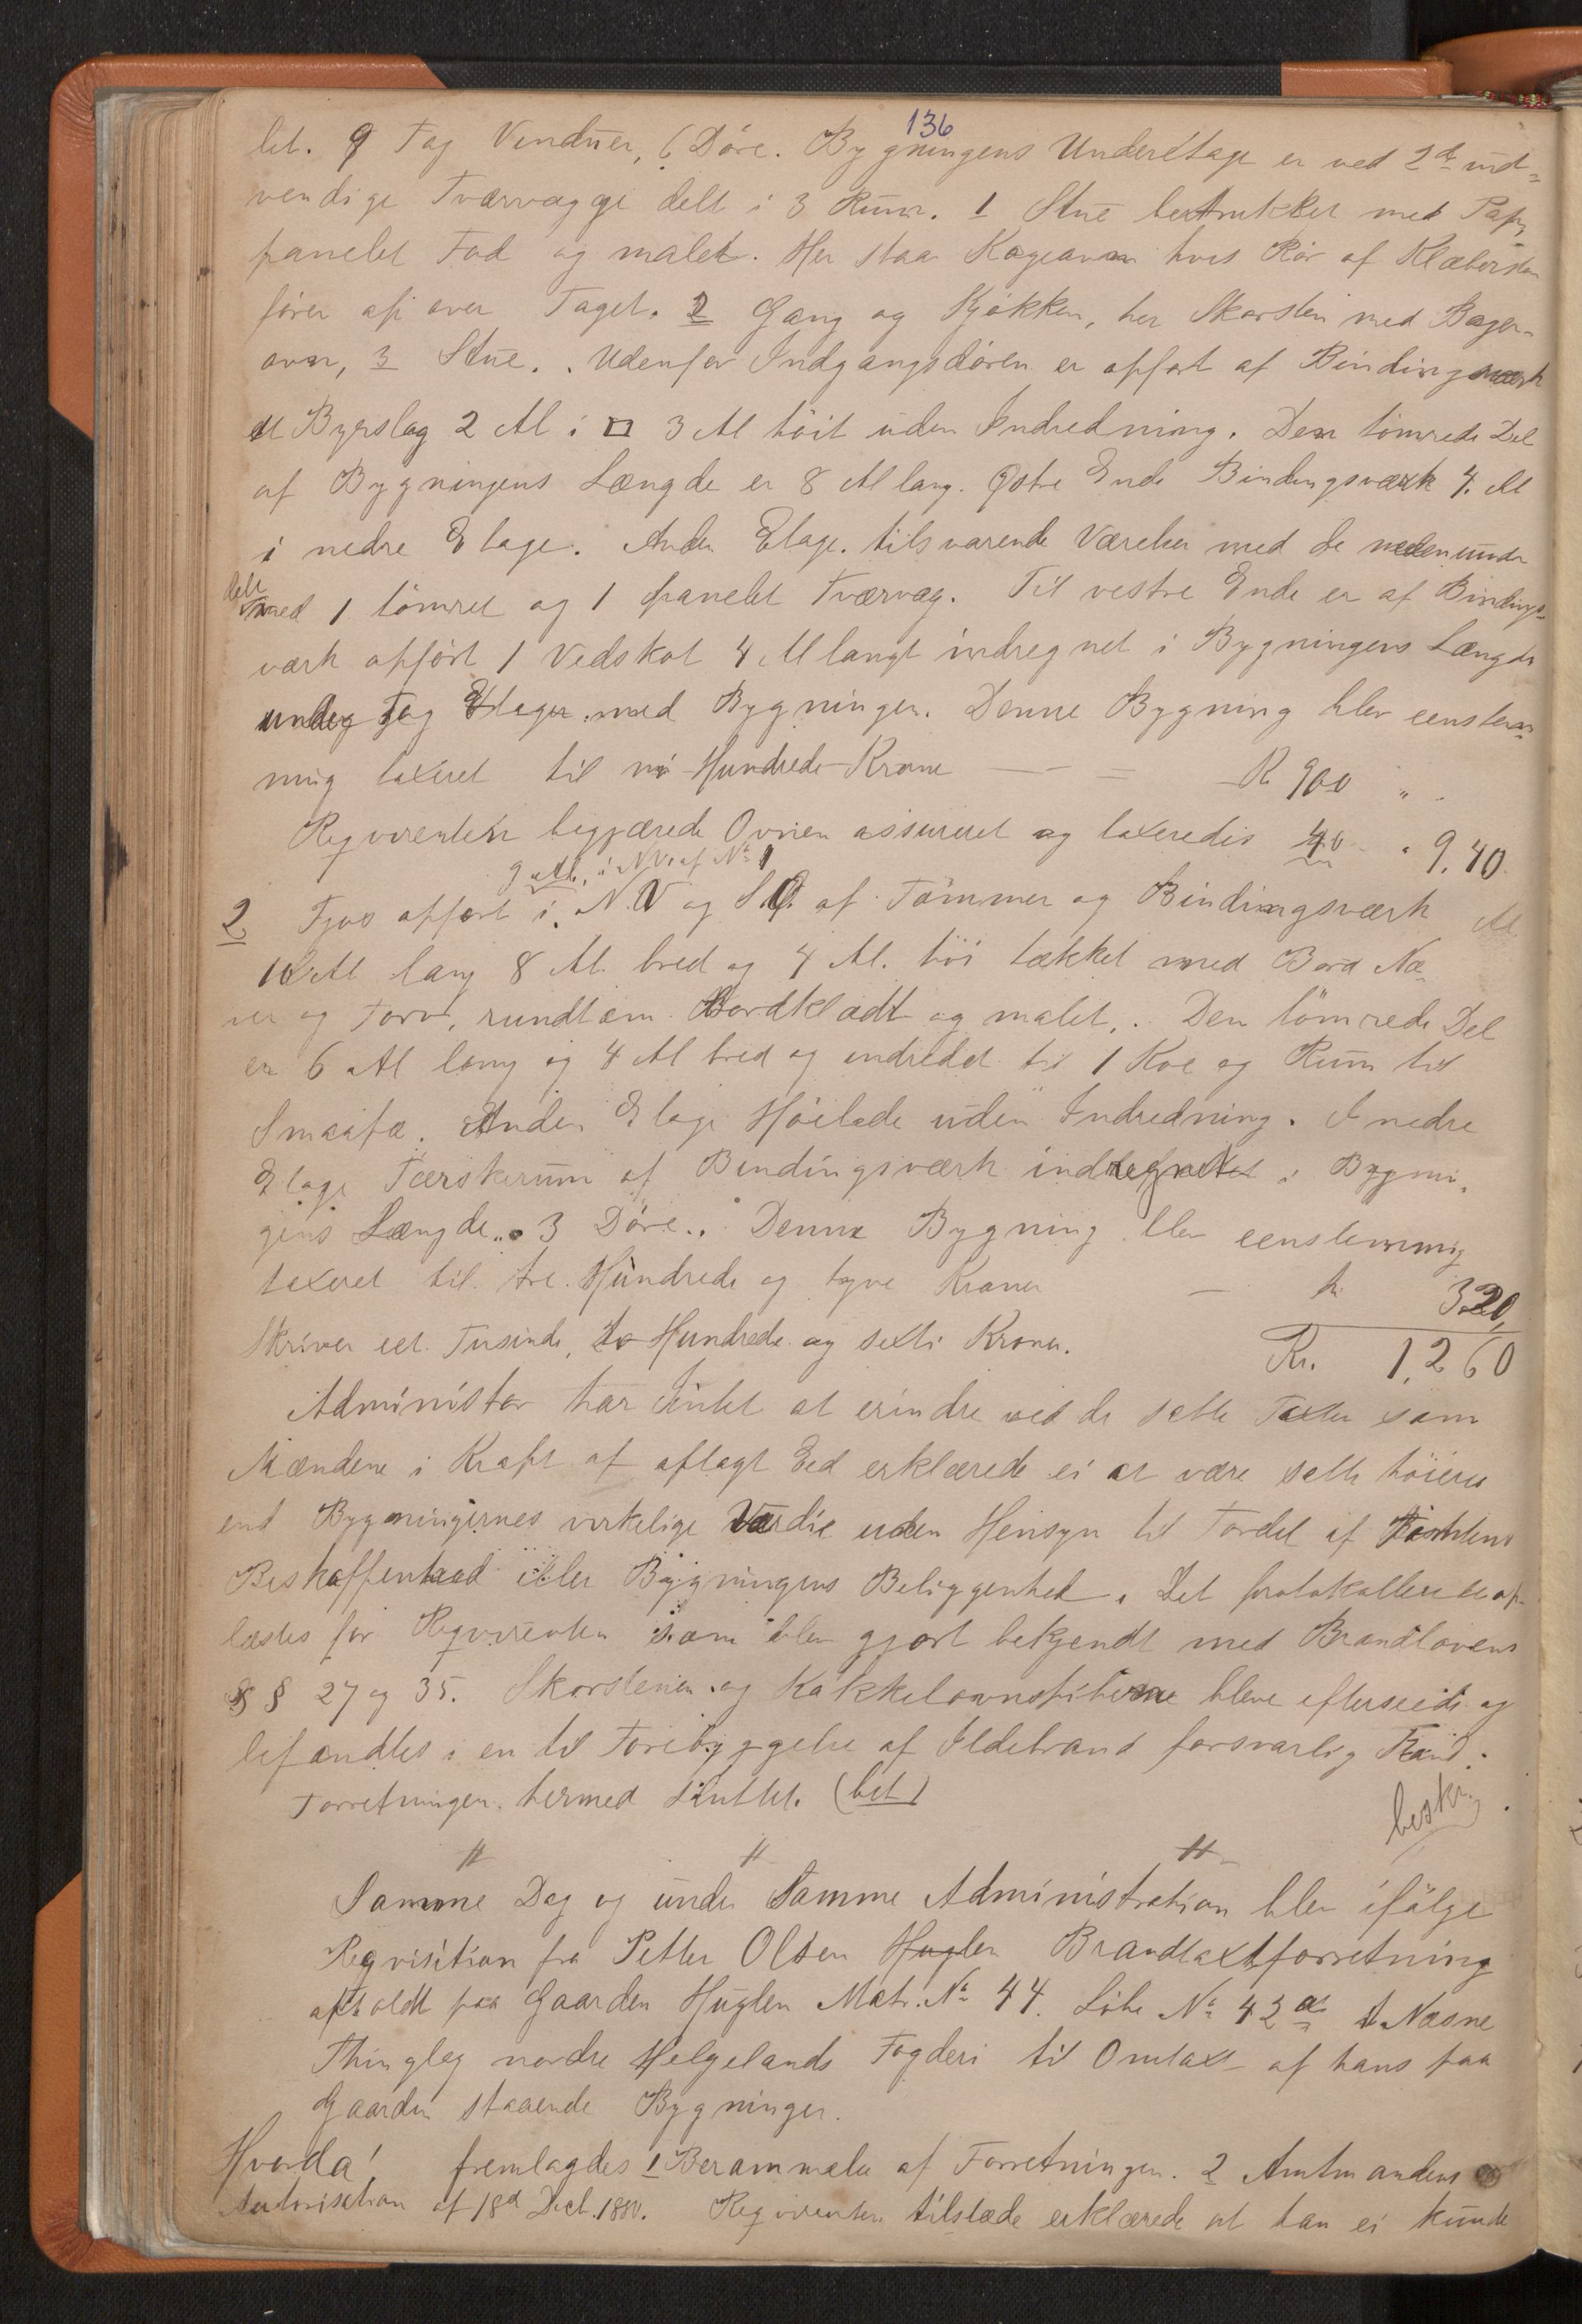 136
let. 9 Fag Vinduer, 6 Döre. Bygningens Underétage er ved 2de ind-
vendige Tværvægge delt i 3 Rum. 1 Stue bestrukket med Pap,
panelet Tod og malet. Her staa Kogeovn hvis Rör af Kleberston
förer op over Taget. 2 Gang og Kjökken, her Skorsten med Bager-
ovn, 3 Stue. Udenfor Indgangsdören er opfört af Bindingsværk
et Byrslag 2 Al i □ 3 Al höit uden Indredning. Den tömrede Del
af Bygningens Længde er 8 Al lang. Østre Ende Bindingsværk 4. Al
i nedre Etage. Anden Etage. tilsvarende Værelser med de nedenunder
delt
med 1 tömret og 1 panelet Tværvæg. Til vestre Ende er af Bindings-
værk opfört 1 Vedskot 4 Al langt indregnet i Bygningens Længde
under Tag Etager med Bygningen. Denne Bygning blev eenstem-
mig taxeret til ni Hundrede Krone — — = K 900 " .
Reqvirenten begjærede Ovnen assureret og taxeredes 40 " 9,40
9 Al. i NV. af No 1
2 Fjøs opfört i N.V og S.O. af Tömmer og Bindingsværk Al
10 Al lang 8 Al. bred og 4 Al. höi tækket med Bord Næ-
ver og Torv, rundtom Bordklædt og malet. Den tömrede Del
er 6 Al lang og 4 Al bred og indredet til 1 Koe og Rum til
Smaafæ. Anden Etage Höilade uden Indredning. I nedre
Etage Tærskerum af Bindingsværk indregnet i Bygnin-
gens Længde. 3 Döre. Denne Bygning blev eenstemmig
taxeret til tre Hundrede og tyve Kroner — Kr 320,
Skriver eet Tusinde, to Hundrede og sexti Kroner. Kr. 1,260
Administor har Intet at erindre ved de satte Taxter som
Mændene i Kraft af aflagt Eed erklærede ei at være satte höiere
end Bygningernes virkelige Værdie uden Hensyn til Fordel af Tomtens
Beskaffenhed eller Bygningens Beliggenhed. Det protokollerede op-
læstes for Reqvirenten som blev gjort bekjendt med Brandlovens
§ § 27 og 35. Skorstenen og Kakkelovnspiberne bleve efterseede og
befandtes i en til Forebyggelse af Ildebrand forsvarlig Stand.
Forretningen hermed sluttet. (bet) beskr.
" " "
Samme Dag og under Samme Administration blev ifölge
Reqvisition fra Petter Olsen Huglen Brandtaxtforretning
afholdt paa Gaarden Huglen Matr. No 44. Löbe No 42a i Næsne
Thinglag nordre Helgelands Fogderi til Omtaxt af hans paa
Gaarden staaende Bygninger.
Hvorda! fremlagdes 1 Berammelse af Forretningen. 2 Amtmandens
Autorisation af 18d Dect. 1880. Reqvirenten tilstæde erklærede at han ei kunde